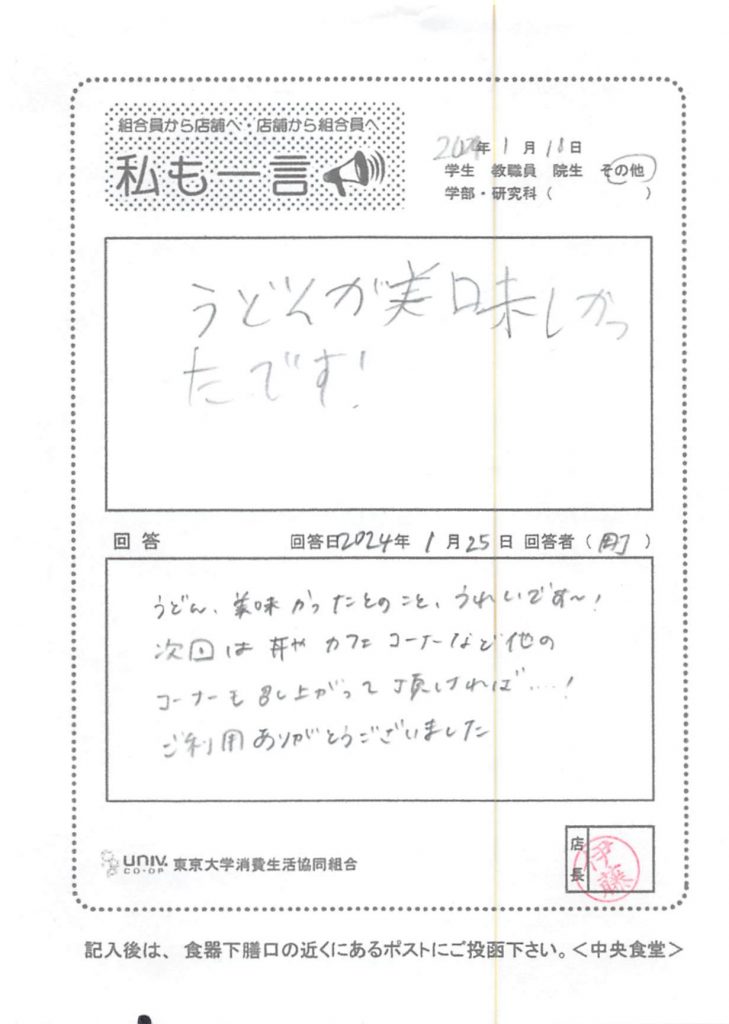 組合員から店舗へ・店舗から組合員へ
私も一言
2024年 1月 18日
学生 教職員 院生 その他
学部・研究科（ ）
うどんが美味しかっ
たです!
回答 回答日2024年 1月25日 回答者（ ）
うどん、美味かったとのこと、うれしいです〜!
次回は丼やカフェコーナーなど他の
コーナーも召し上がって頂ければ……!
ご利用ありがとうございました
UNIV. CO-OP 東京大学消費生活協同組合
店長 伊藤
記入後は、食器下膳口の近くにあるポストにご投函下さい。＜中央食堂＞